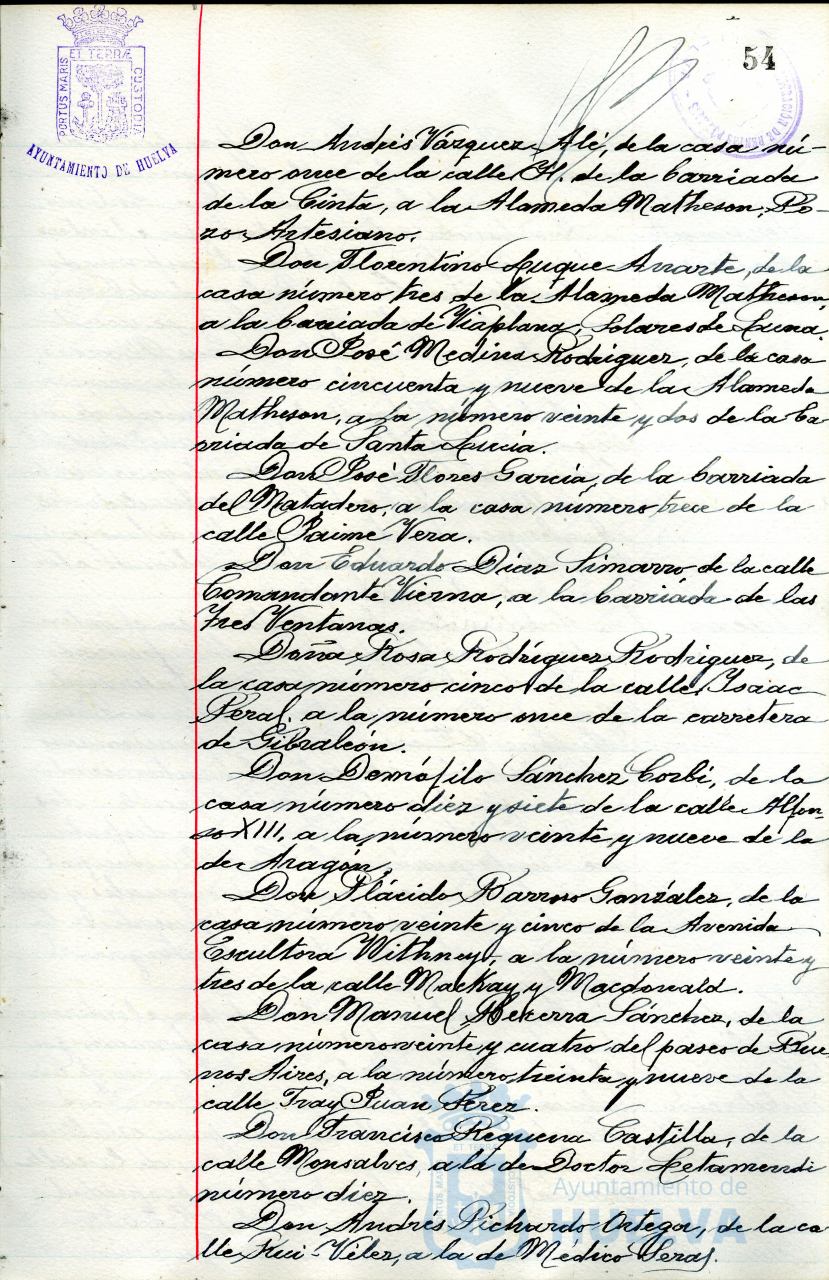 PORTUS MARIS ET TERRÆ CUSTODIA
AYUNTAMIENTO DE HUELVA
54
Don Andrés Vázquez Alé, de la casa nú-
mero once de la calle H. de la barriada
de la Cinta, a la Alameda Matheson, Po-
zo Artesiano.
Don Florentino Luque Anarte, de la
casa número tres de la Alameda Matheson,
a la barriada de Viaplana, Solares de Luna.
Don José Medina Rodriguez, de la casa
número cincuenta y nueve de la Alameda
Matheson, a la número veinte y dos de la ba-
rriada de Santa Lucia.
Don José Flores García, de la barriada
del Matadero, a la casa número trece de la
calle Jaime Vera.
Don Eduardo Díaz Simarro de la calle
Comandante Vierna, a la barriada de las
Tres Ventanas.
Doña Rosa Rodríguez Rodriguez, de
la casa número cinco de la calle Isaac
Peral, a la número once de la carretera
de Gibraleón.
Don Demófilo Sánchez Corbí, de la
casa número diez y siete de la calle Alfon-
so XIII, a la número veinte y nueve de la
de Aragón.
Don Plácido Barroso González, de la
casa número veinte y cinco de la Avenida
Escultora Withney, a la número veinte y
tres de la calle Mackay y Macdonald.
Don Manuel Becerra Sánchez, de la
casa número veinte y cuatro del paseo de Bue-
nos Aires, a la número treinta y nueve de la
calle Fray Juan Perez.
Don Francisco Requena Castilla, de la
calle Monsalves, a la de Doctor Letamendi
número diez.
Don Andrés Pichardo Ortega, de la ca-
lle Rui-Vélez, a la de Médico Seras.
Ayuntamiento de
HUELVA